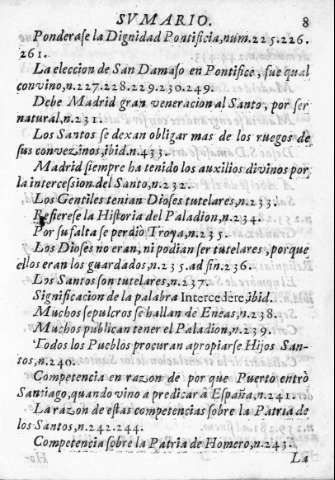 SVMARIO. 8
Ponderase la Dignidad Pontificia, num. 225. 226.
261.
La eleccion de San Damaso en Pontifice, fue qual
convino, n. 227. 228. 229. 230. 249.
Debe Madrid gran veneracion al Santo, por ser
natural, n. 231.
Los Santos se dexan obligar mas de los ruegos de
sus convezinos, ibid. n. 433.
Madrid siempre ha tenido los auxilios divinos por
la intercession del Santo, n. 232.
Los Gentiles tenian Dioses tutelares, n. 233.
Refierese la Historia del Paladion, n. 234.
Por su falta se perdió Troya, n. 235.
Los Dioses no eran, ni podian ser tutelares, porque
ellos eran los guardados, n. 235. ad fin. 236.
Los Santos son tutelares, n. 237.
Significacion de la palabra Intercedere, ibid.
Muchos sepulcros se hallan de Eneas, n. 238.
Muchos publican tener el Paladion, n. 239.
Todos los Pueblos procuran apropiarse Hijos San-
tos, n. 240.
Competencia en razon de por que Puerto entrò
Santiago, quando vino a predicar à España, n. 241.
La razon de estas competencias sobre la Patria de
los Santos, n. 242. 244.
Competencia sobre la Patria de Homero, n. 243.
La